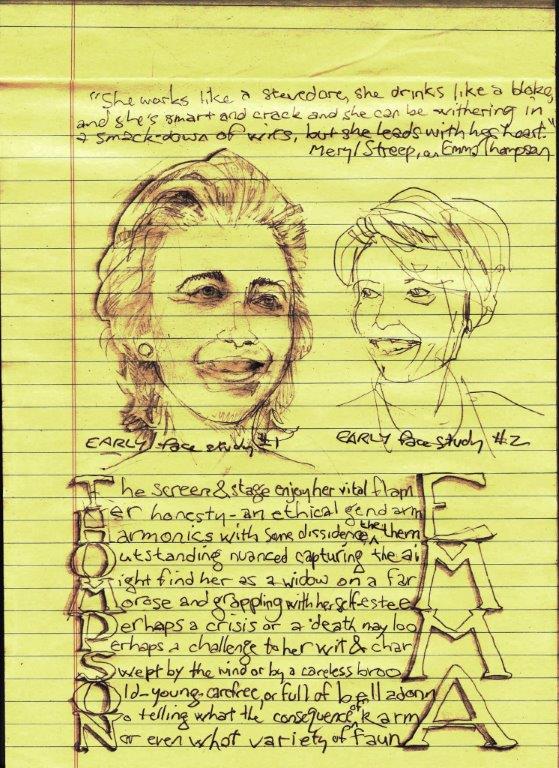 "She works like a stevedore, she drinks like a bloke,
and she's smart and crack and she can be withering in
a smack-down of wits, but she leads with her heart."
Meryl Streep, on Emma Thompson
EARLY face study #1
EARLY face study #2
The screen & stage enjoy her vital flamE
Her honesty - an ethical gendarmE
Harmonics with some dissidence, the themE
Outstanding nuanced capturing the aiM
Might find her as a widow on a farM
Morose and grappling with her self-esteeM
Perhaps a crisis or a death may looM
Perhaps a challenge to her wit & charM
Swept by the wind or by a careless brooM
Old-young-carefree, or full of belladonnA
No telling what the consequence of karmA
Nor even what variety of faunA